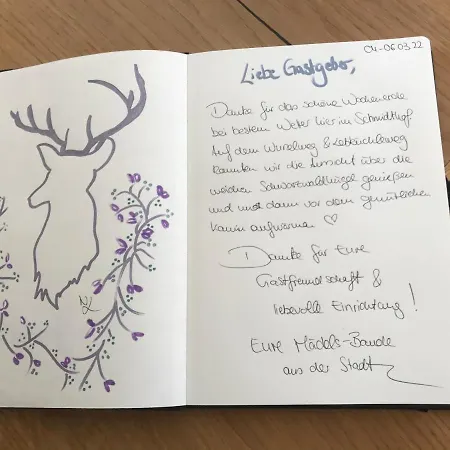 04-06.03.22
Liebe Gastgeber,
Danke für das schöne Wochenende
bei bestem Wetter hier im Schmidthof
Auf dem Wurzelweg &
konnten wir die Aussicht über die
weichen Schwarzwaldhügel genießen
und uns dann vor dem gemütlichen
Kamin aufwärmen ♡
Danke für Eure
Gastfreundschaft &
liebevolle Einrichtung!
Eure Mädels-Bande
aus der Stadt